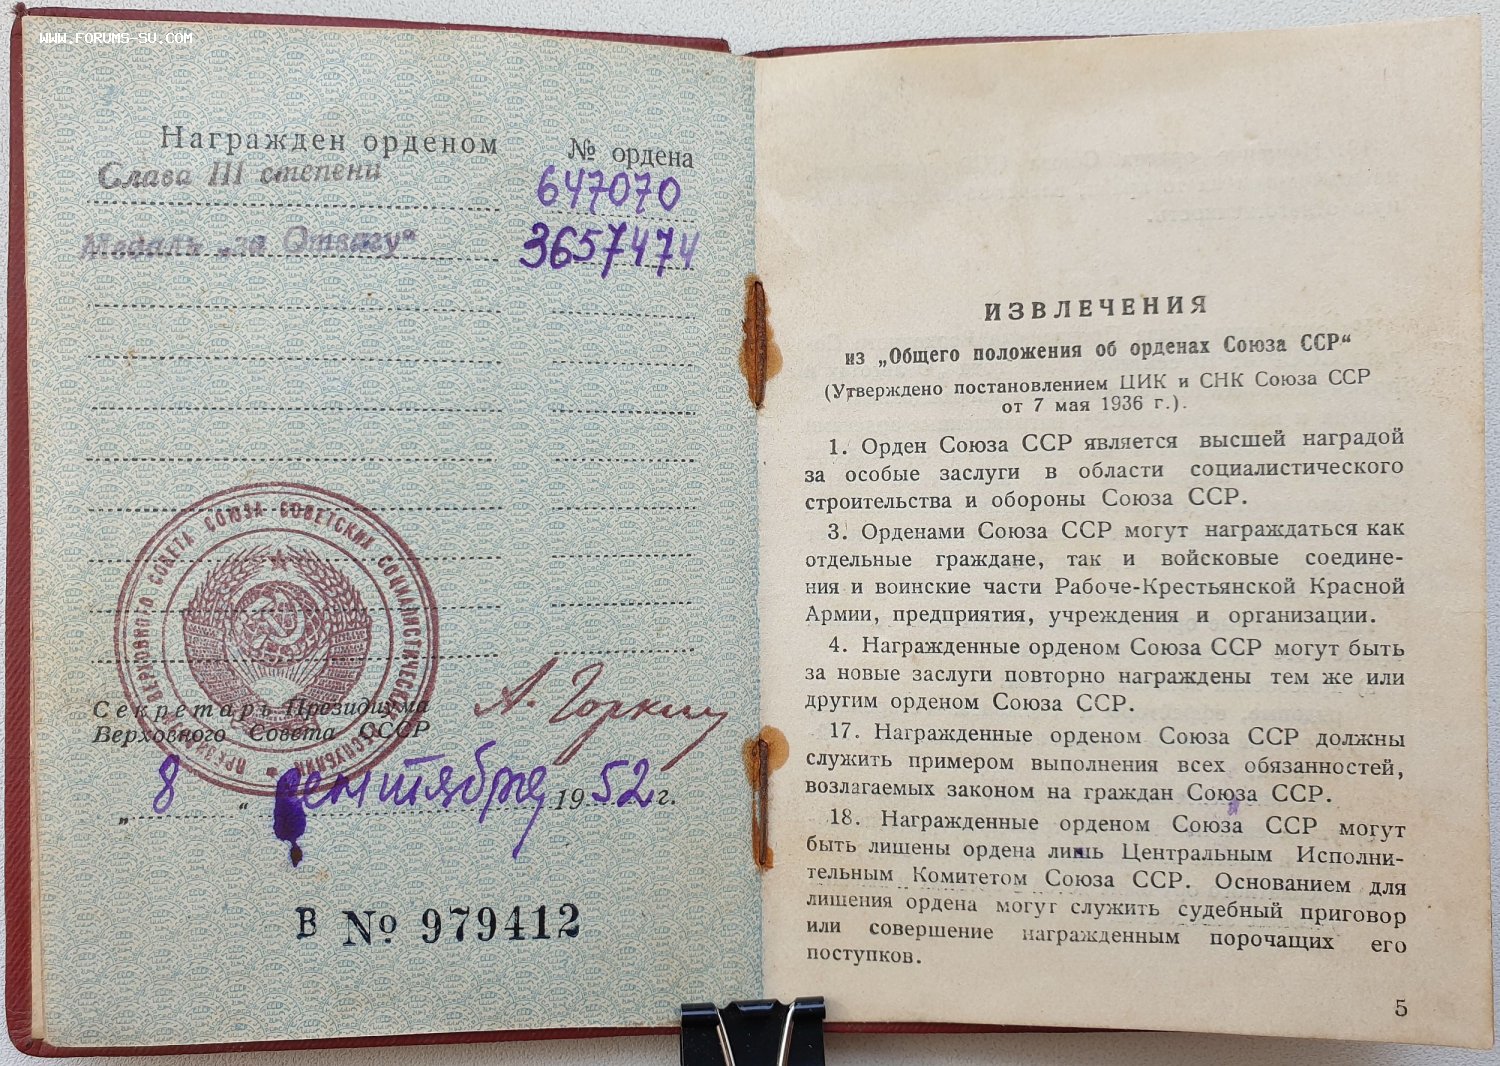 WWW.FORUMS-SU.COM
Награжден орденом № ордена
Слава III степени 647070
Медаль „за Отвагу“ 3657474
ПРЕЗИДИУМ ВЕРХОВНОГО СОВЕТА СОЮЗА СОВЕТСКИХ СОЦИАЛИСТИЧЕСКИХ РЕСПУБЛИК
Секретарь Президиума
Верховного Совета СССР
А. Горкин
„8“ сентября 1952 г.
В № 979412
ИЗВЛЕЧЕНИЯ
из „Общего положения об орденах Союза ССР“
(Утверждено постановлением ЦИК и СНК Союза ССР
от 7 мая 1936 г.).
1. Орден Союза ССР является высшей наградой
за особые заслуги в области социалистического
строительства и обороны Союза ССР.
3. Орденами Союза ССР могут награждаться как
отдельные граждане, так и войсковые соедине-
ния и воинские части Рабоче-Крестьянской Красной
Армии, предприятия, учреждения и организации.
4. Награжденные орденом Союза ССР могут быть
за новые заслуги повторно награждены тем же или
другим орденом Союза ССР.
17. Награжденные орденом Союза ССР должны
служить примером выполнения всех обязанностей,
возлагаемых законом на граждан Союза ССР.
18. Награжденные орденом Союза ССР могут
быть лишены ордена лишь Центральным Исполни-
тельным Комитетом Союза ССР. Основанием для
лишения ордена могут служить судебный приговор
или совершение награжденным порочащих его
поступков.
5